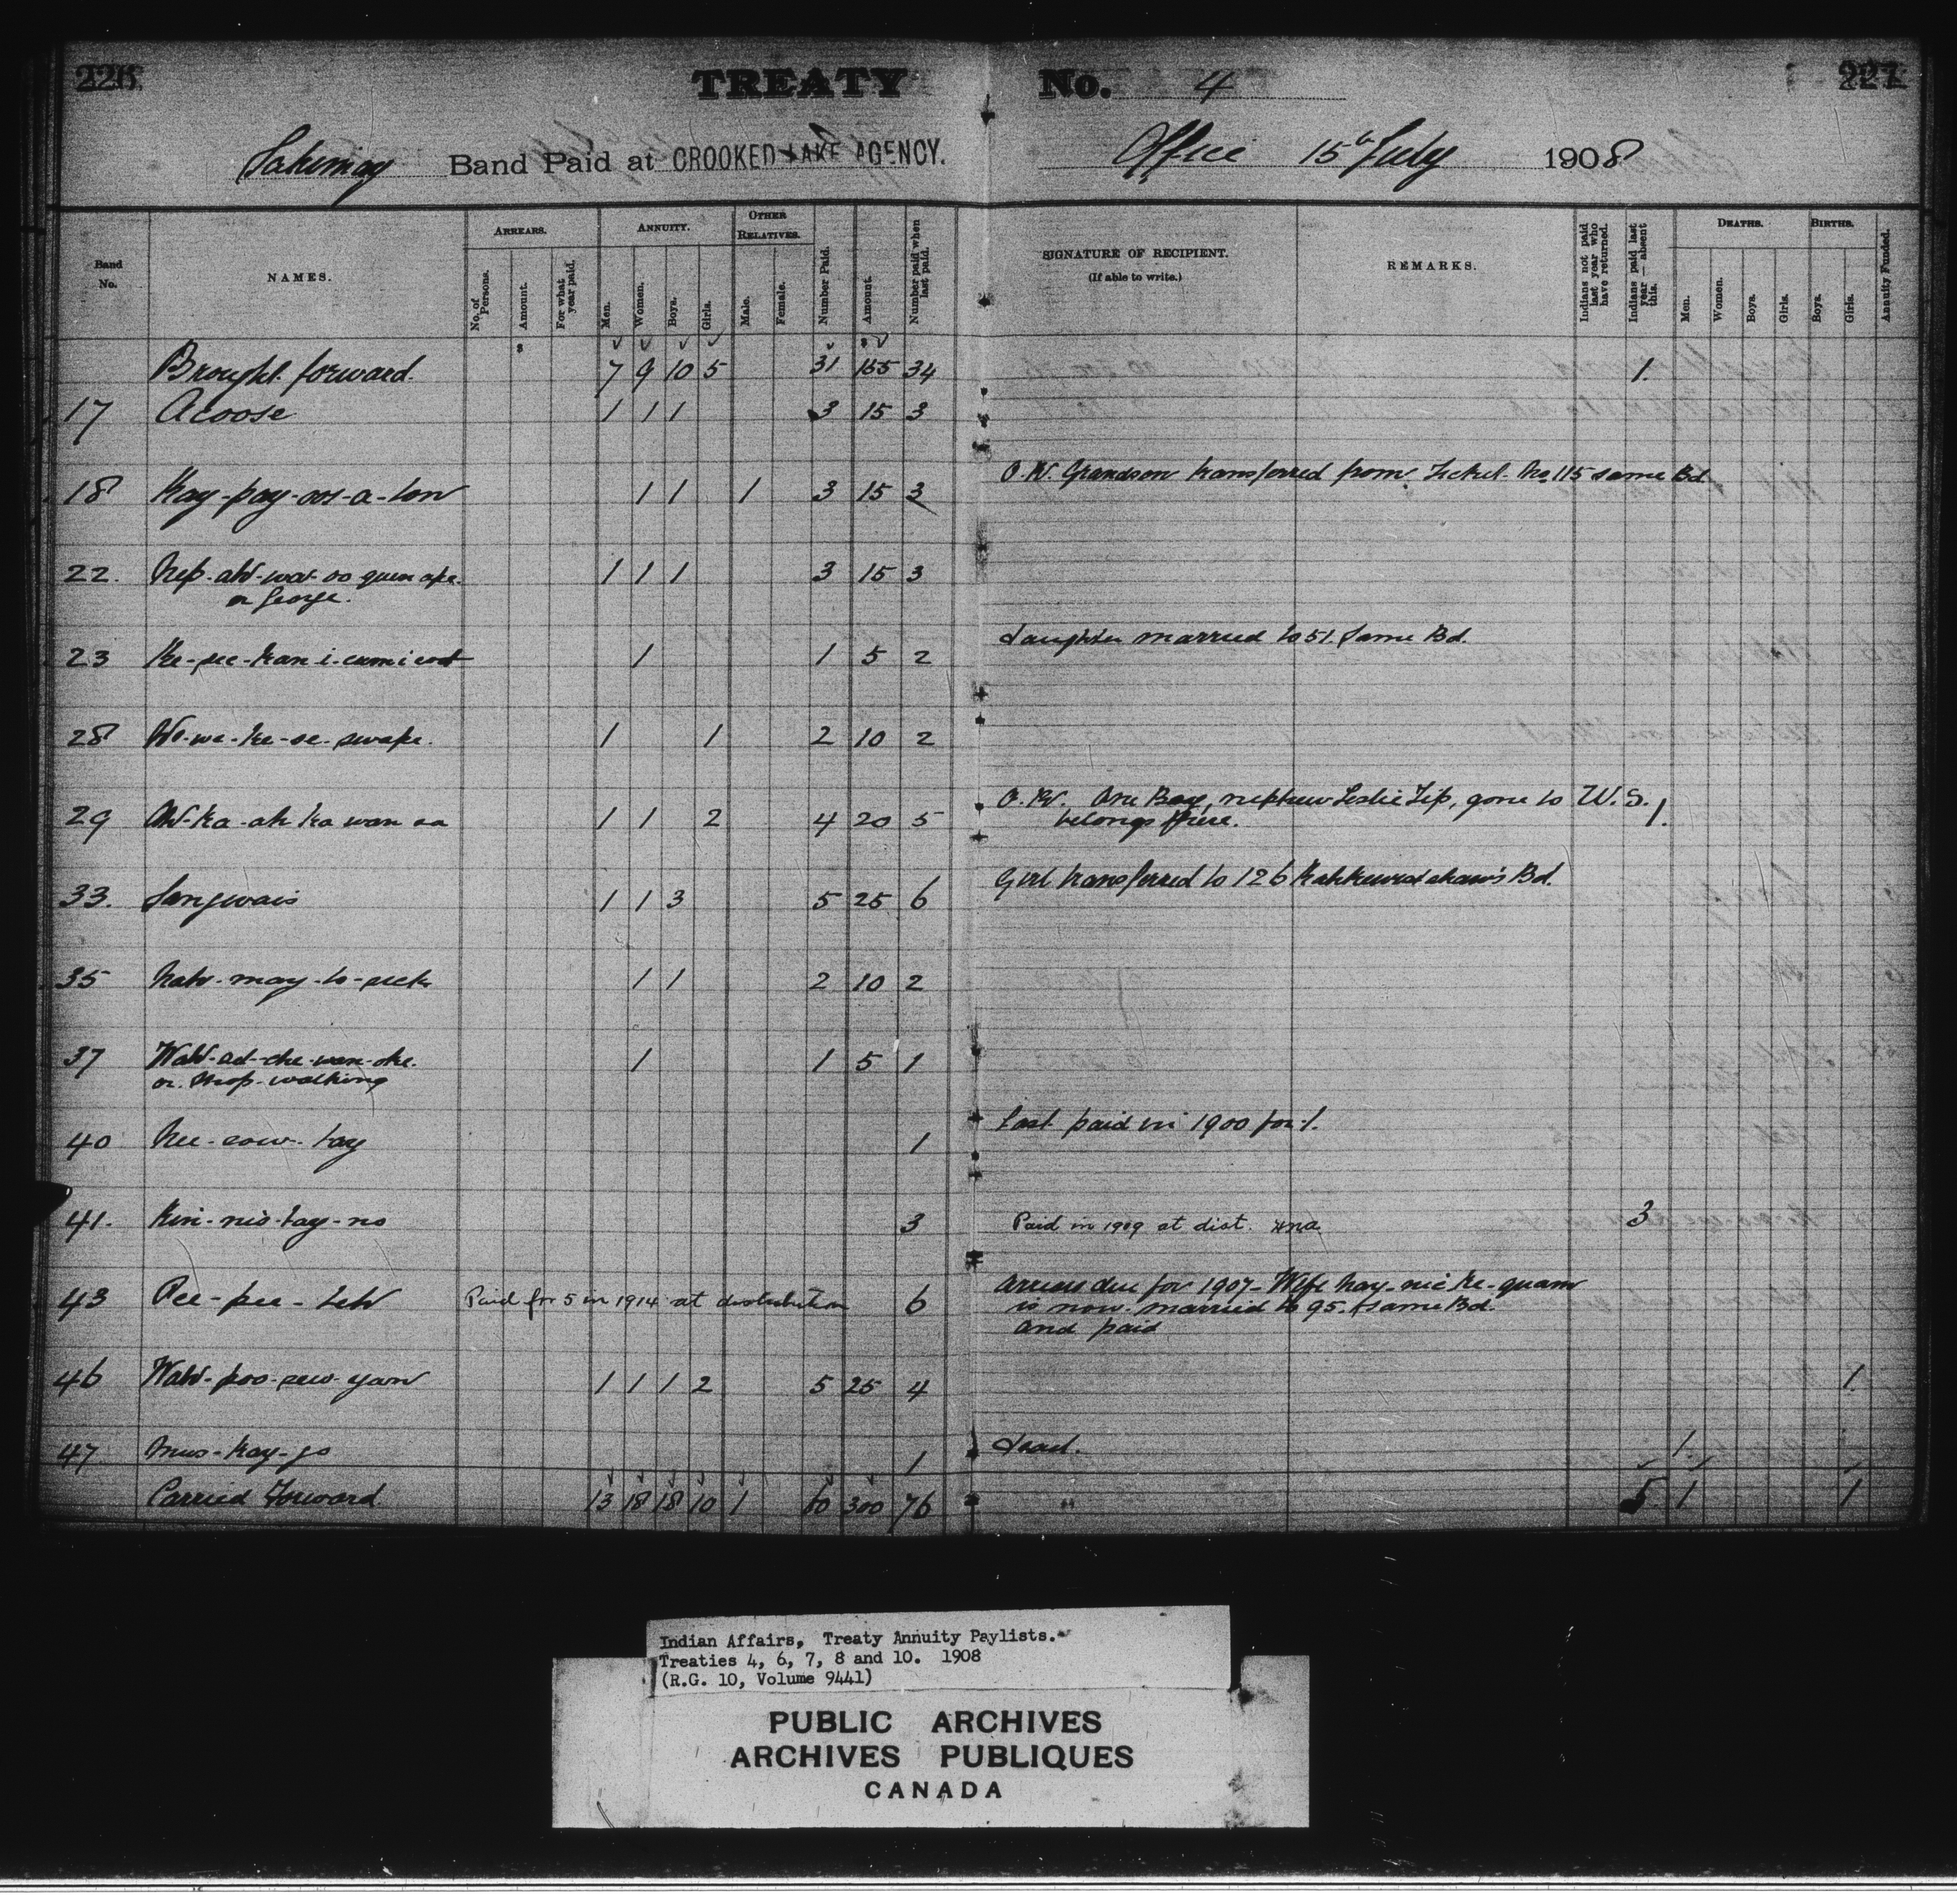 226 TREATY No. 4 227
Sakimay Band Paid at CROOKED LAKE AGENCY. Office 15th July 1908
Band No. NAMES. ARREARS. No. of Persons. Amount. For what year paid. ANNUITY. Men. Women. Boys. Girls. OTHER RELATIVES. Male. Female. Number Paid. Amount. Number paid when last paid. SIGNATURE OF RECIPIENT. (If able to write.) REMARKS. Indians not paid last year who have returned. Indians paid last year — absent this. DEATHS. Men. Women. Boys. Girls. BIRTHS. Boys. Girls. Annuity Funded.
Brought forward. 7 9 10 5 31 155 34 1.
17 Acoose 1 1 1 3 15 3
18 Kay-pay-oos-a-ton 1 1 1 3 15 3 O.K. Grandson transferred from Ticket No 115 same Bd
22. Nep-ah-wat-oo quen ape. 1 1 1 3 15 3
or George.
23 Ke-pee-kan-i-cumicoot 1 1 5 2 daughter married to 51. Same Bd.
28 We-we-ke-se-swape. 1 1 2 10 2
29 Ah-ka-ah ka wan aa 1 1 2 4 20 5 O.K. One Boy, nephew Leslie Tip, gone to U.S. 1.
belongs there.
33. Sangwais 1 1 3 5 25 6 Girl transferred to 126 Kahkewistahaw's Bd.
35 Nah-may-to-peek 1 1 2 10 2
37 Wah-sat-che-wan-oke. 1 1 5 1
or. Mrs. walking
40 Nee-sow-tay 1 Last paid in 1900 for 1.
41. Kin-nis-tay-no 3 Paid in 1909 at dist. 3
43 Pee-pee-teh Paid for 5 in 1914 at distribution 6 Arrears due for 1907-Wife Nay-nic ke-quam
is now married to 95. same Bd.
and paid
46 Wah-poo-sew-yan 1 1 1 2 5 25 4 1
47 Mus-kay-go 1 dead. 1.
Carried Forward 13 18 18 10 1 60 300 76 " 5. 1 1
Indian Affairs, Treaty Annuity Paylists.
Treaties 4, 6, 7, 8 and 10. 1908
(R.G. 10, Volume 9441)
PUBLIC ARCHIVES
ARCHIVES PUBLIQUES
CANADA